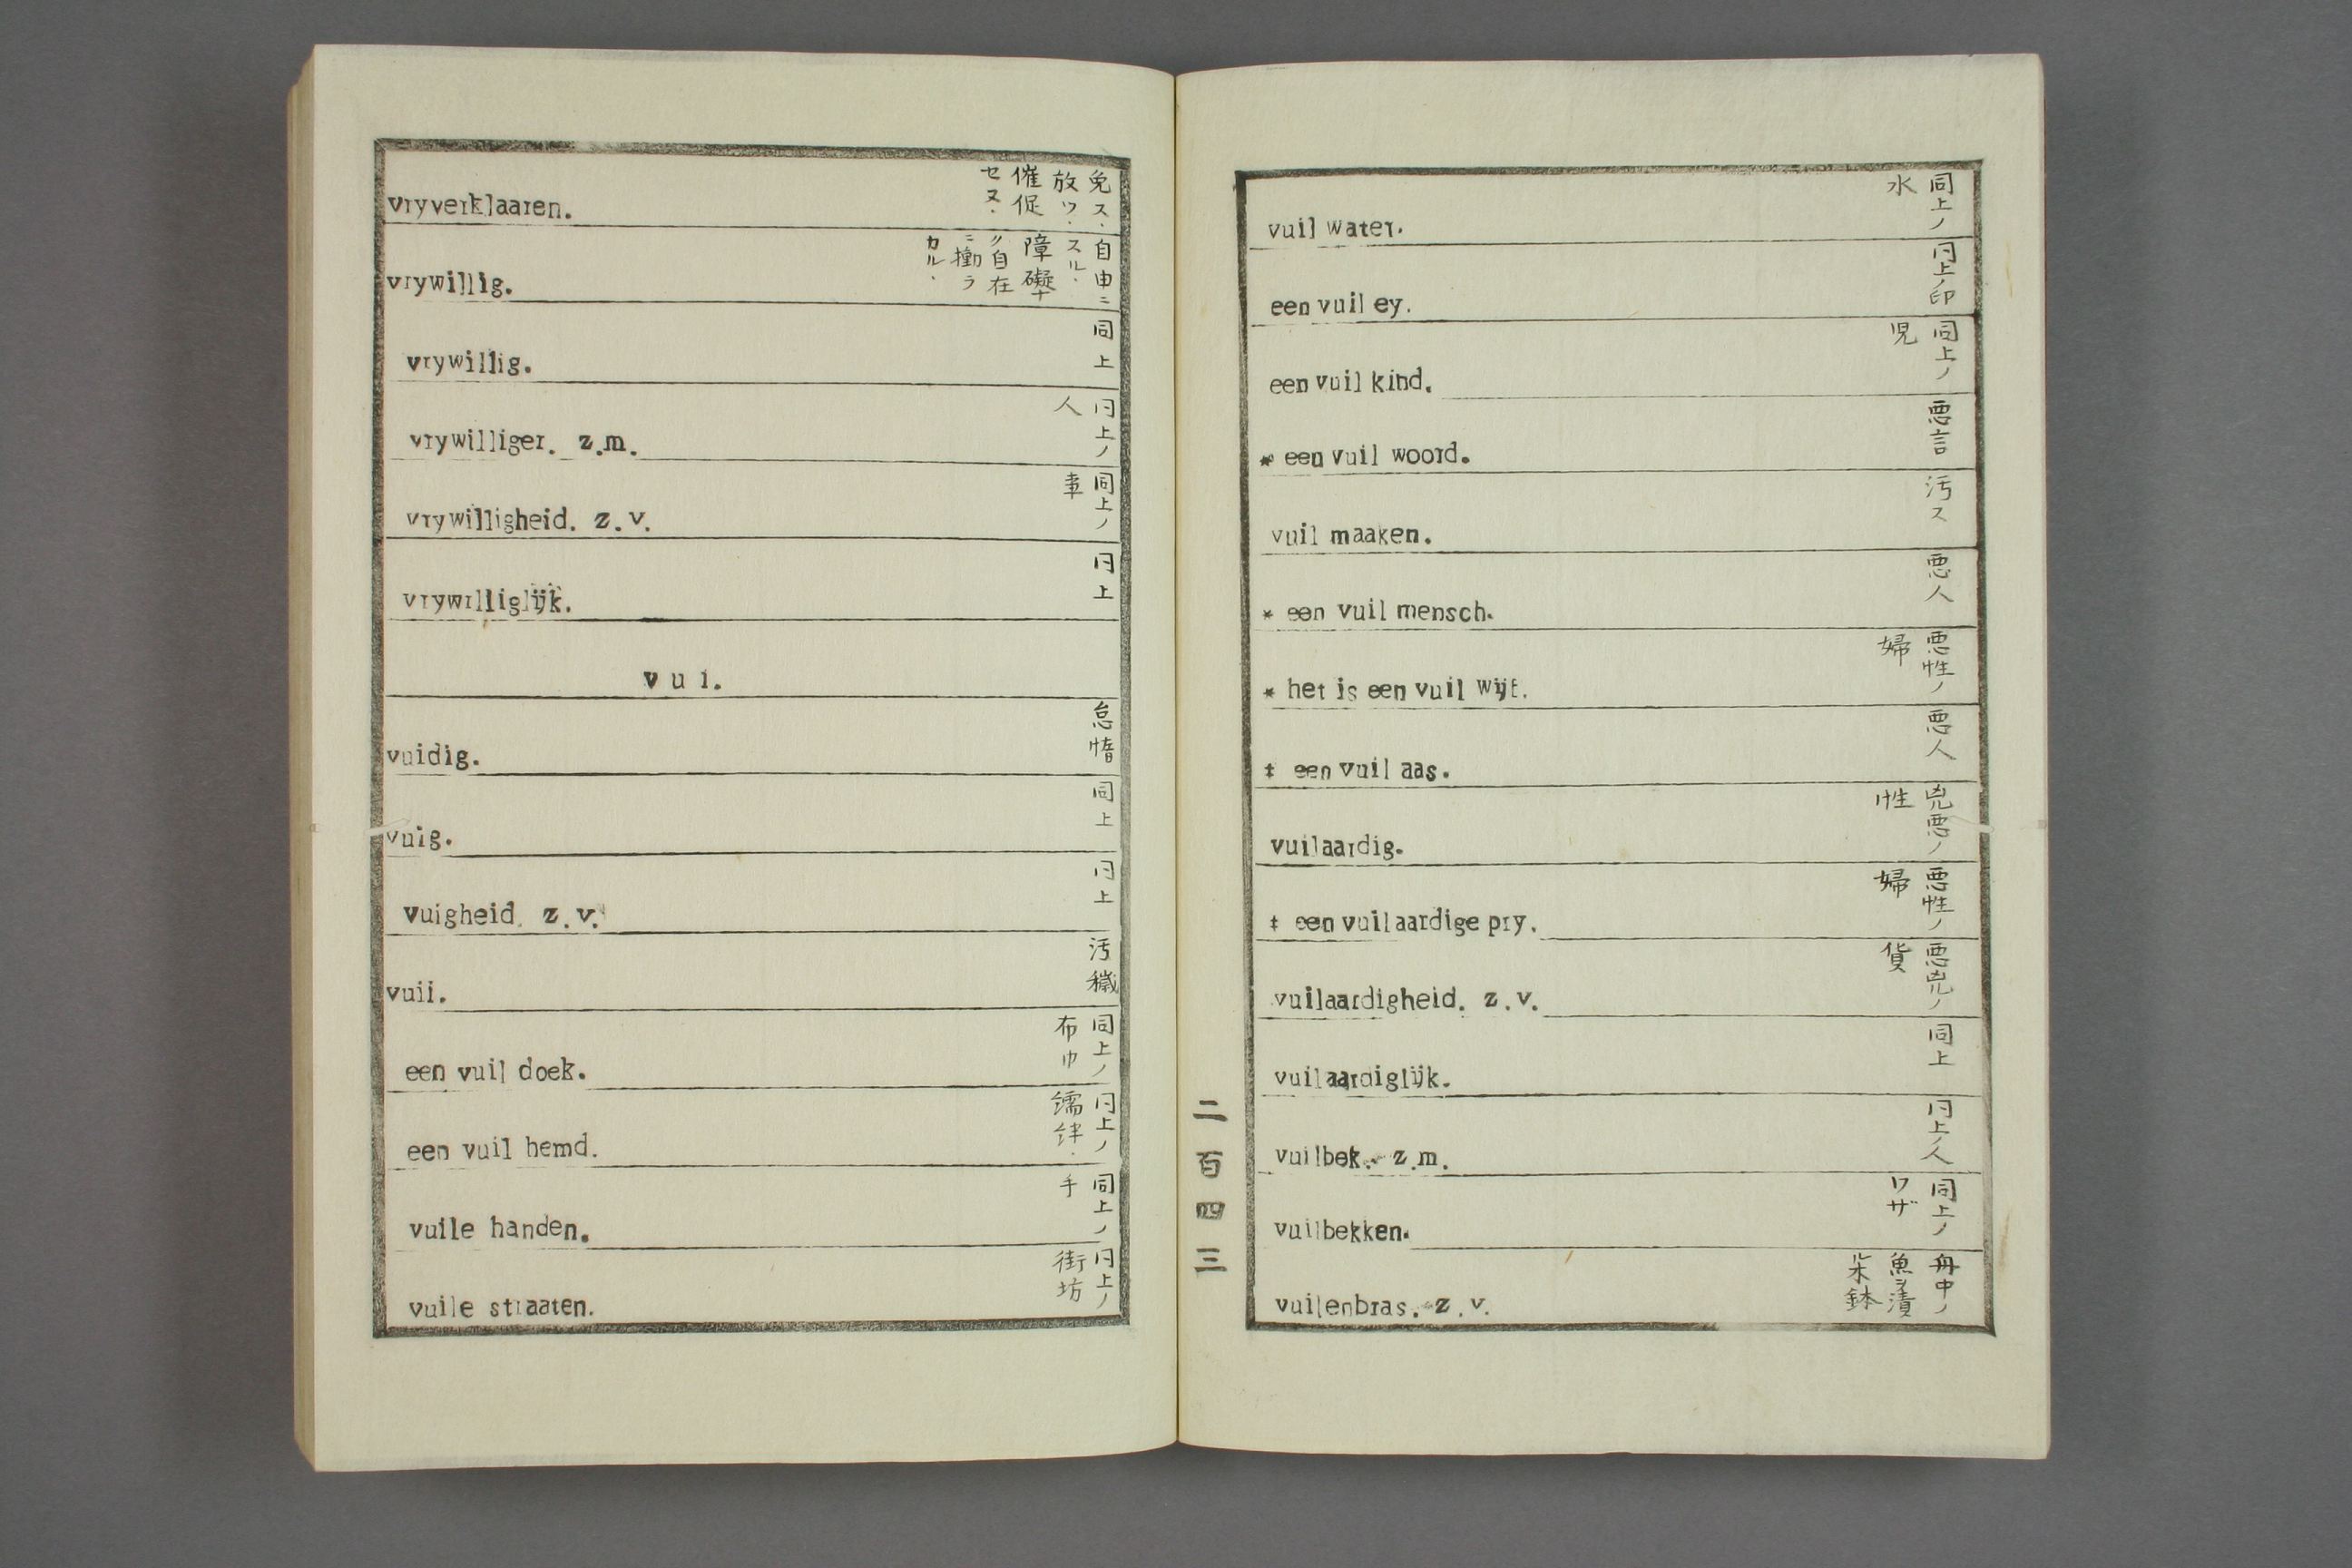 vryverklaaren.
免ス.
放ツ.
催促
セヌ.
vrywillig.
自由ニ
スル.
障礙ナ
ク自在
ニ働ラ
カル.
vrywillig.
同上
vrywilliger. z.m.
仝上ノ
人
vrywilligheid. z.v.
同上ノ
事
vrywilliglijk.
仝上
vui.
vuidig.
怠惰
vuig.
同上
vuigheid. z.v.
仝上
vuil.
汚穢
een vuil doek.
同上ノ
布巾
een vuil hemd.
仝上ノ
vuile handen.
同上ノ
手
vuile straaten.
仝上ノ
街坊
vuil water.
同上ノ
水
een vuil ey.
仝上ノ卵
een vuil kind.
同上ノ
児
* een vuil woord.
悪言
vuil maaken.
汚ス
* een vuil mensch.
悪人
* het is een vuil wijf.
悪性ノ
婦
‡ een vuil aas.
悪人
vuilaardig.
兇悪ノ
性
‡ een vuilaardige pry.
悪性ノ
婦
vuilaardigheid. z.v.
悪兇ノ
貨
vuilaardiglijk.
同上
vuilbek. z.m.
仝上ノ人
vuilbekken.
同上ノ
ワザ
vuilenbras. z.v.
舟中ノ
魚ヲ漬
ル木鉢
二百四三